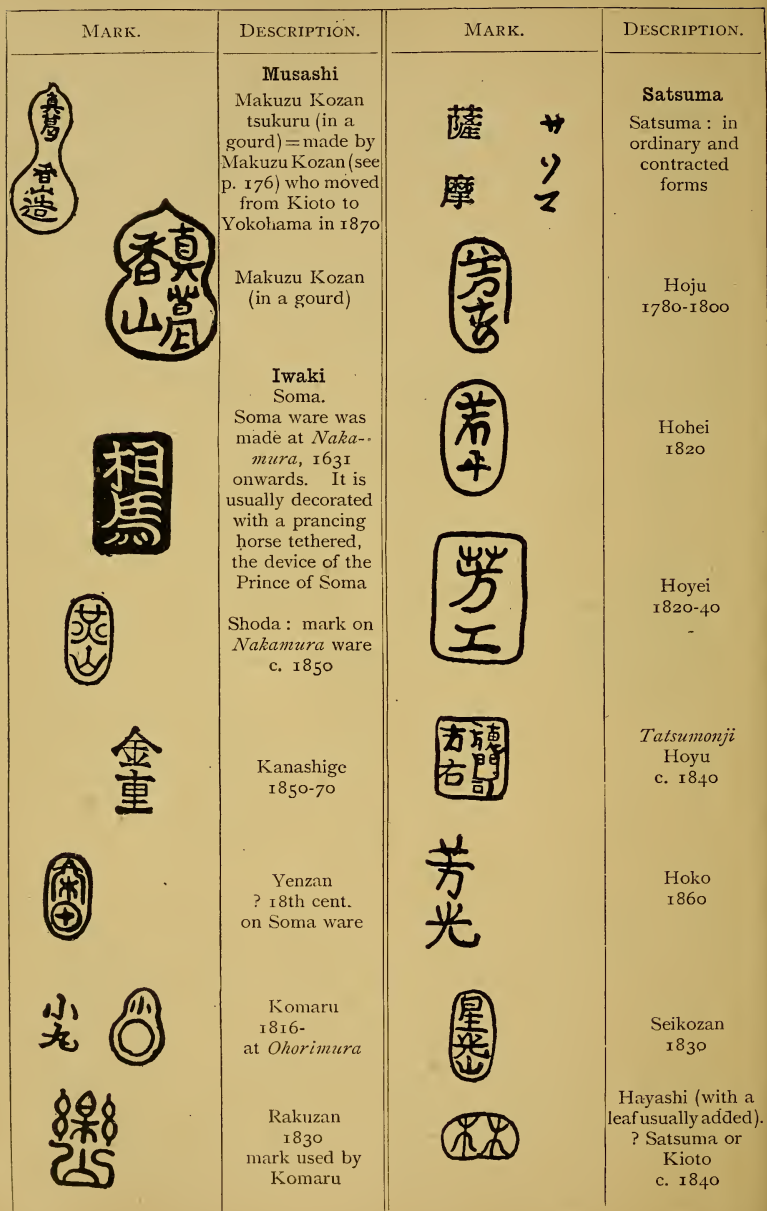 MARK.
DESCRIPTION.
Musashi
真葛
香山造
Makuzu Kozan
tsukuru (in a
gourd) = made by
Makuzu Kozan (see
p. 176) who moved
from Kioto to
Yokohama in 1870
真葛
香山
Makuzu Kozan
(in a gourd)
Iwaki
相馬
Soma.
Soma ware was
made at Naka-
mura, 1631
onwards. It is
usually decorated
with a prancing
horse tethered,
the device of the
Prince of Soma
Shoda : mark on
Nakamura ware
c. 1850
金重
Kanashige
1850-70
Yenzan
? 18th cent.
on Soma ware
小丸
小
Komaru
1816-
at Ohorimura
樂山
Rakuzan
1830
mark used by
Komaru
MARK.
DESCRIPTION.
Satsuma
薩摩
サツマ
Satsuma : in
ordinary and
contracted
forms
Hoju
1780-1800
芳平
Hohei
1820
芳工
Hoyei
1820-40
Tatsumonji
Hoyu
c. 1840
芳光
Hoko
1860
星光山
Seikozan
1830
林
Hayashi (with a
leaf usually added).
? Satsuma or
Kioto
c. 1840